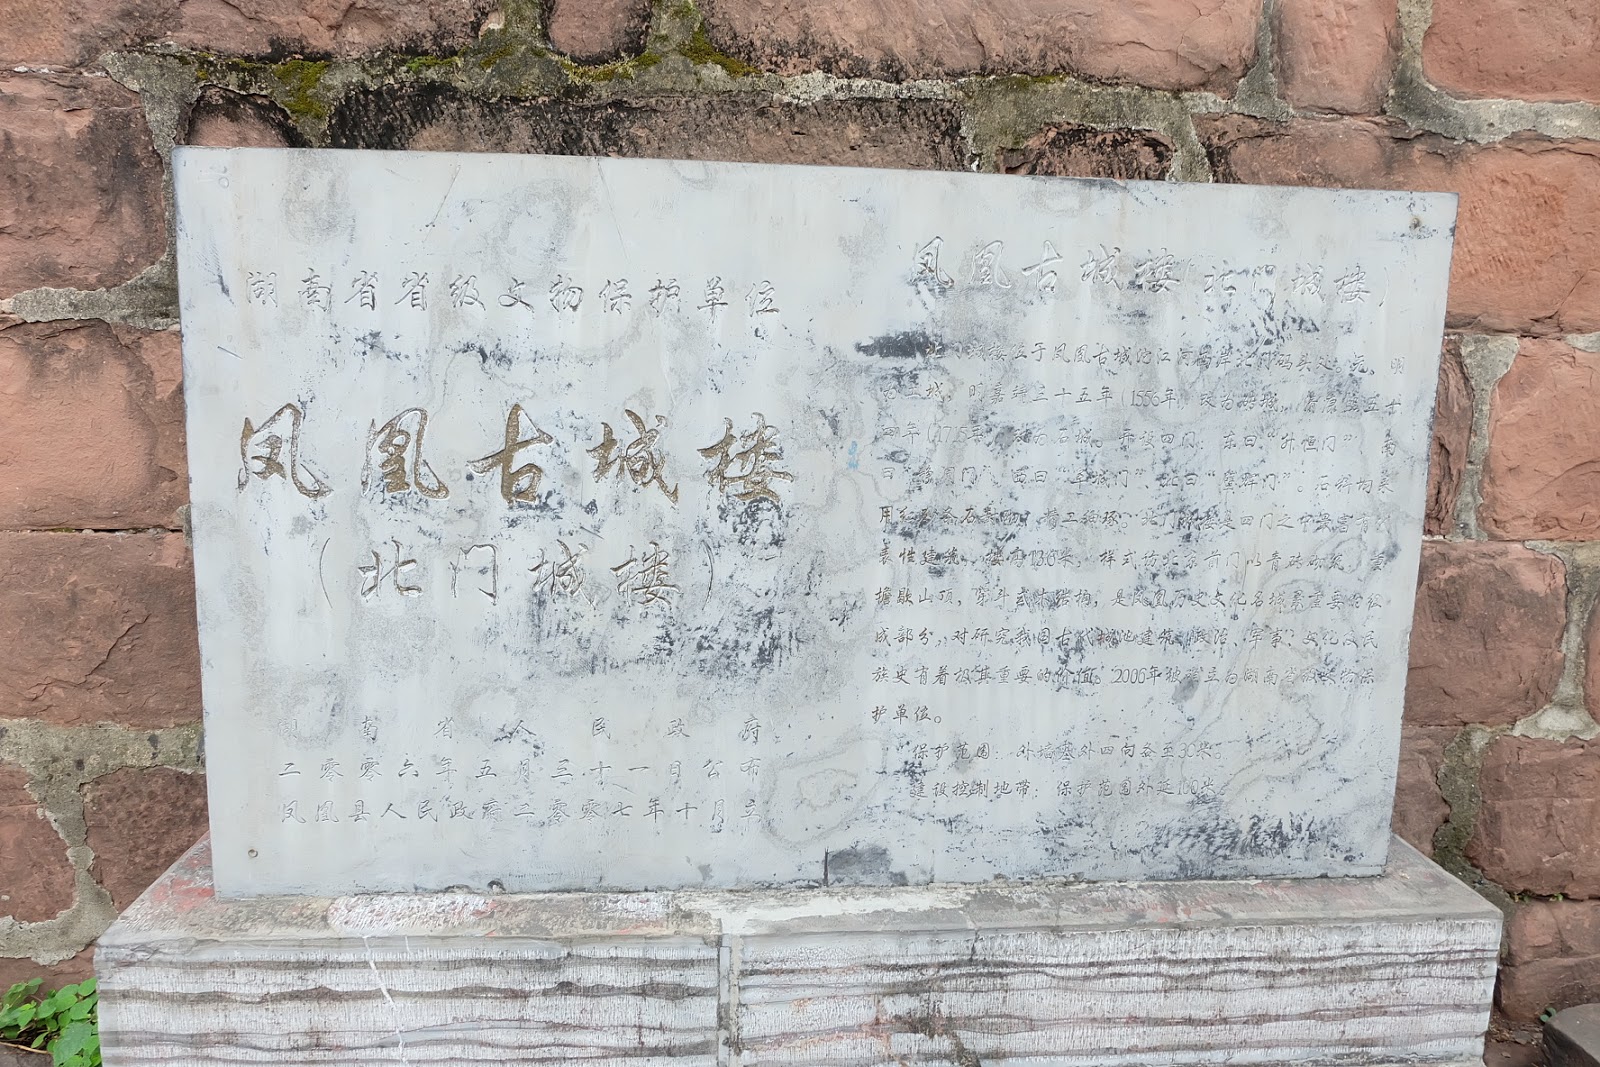 湖南省省级文物保护单位
凤凰古城楼
（北门城楼）
湖南省人民政府
二零零六年五月三十一日公布
凤凰县人民政府二零零七年十月立
凤凰古城楼（北门城楼）
北门城楼立于凤凰古城沱江河南岸北门码头处。元、明
为土城，明嘉靖三十五年（1556年）改为砖城。清康熙五十
四年（1715年）改为石城。开设四门，东曰“升恒门”，南
曰“静澜门”，西曰“阜城门”，北曰“璧辉门”。石料均采
用红砂条石，精工细琢。北门城楼是四门之中最富有代
表性建筑，楼高13.0米，样式仿北京前门以青砖砌筑，重
檐歇山顶，穿斗式木结构，是凤凰历史文化名城重要的组
成部分，对研究我国古代城池建筑、政治、军事、文化及民
族史有着极其重要的价值。2006年被公立为湖南省级文物保
护单位。
保护范围：外墙基外四向各至30米。
建设控制地带：保护范围外延100米。